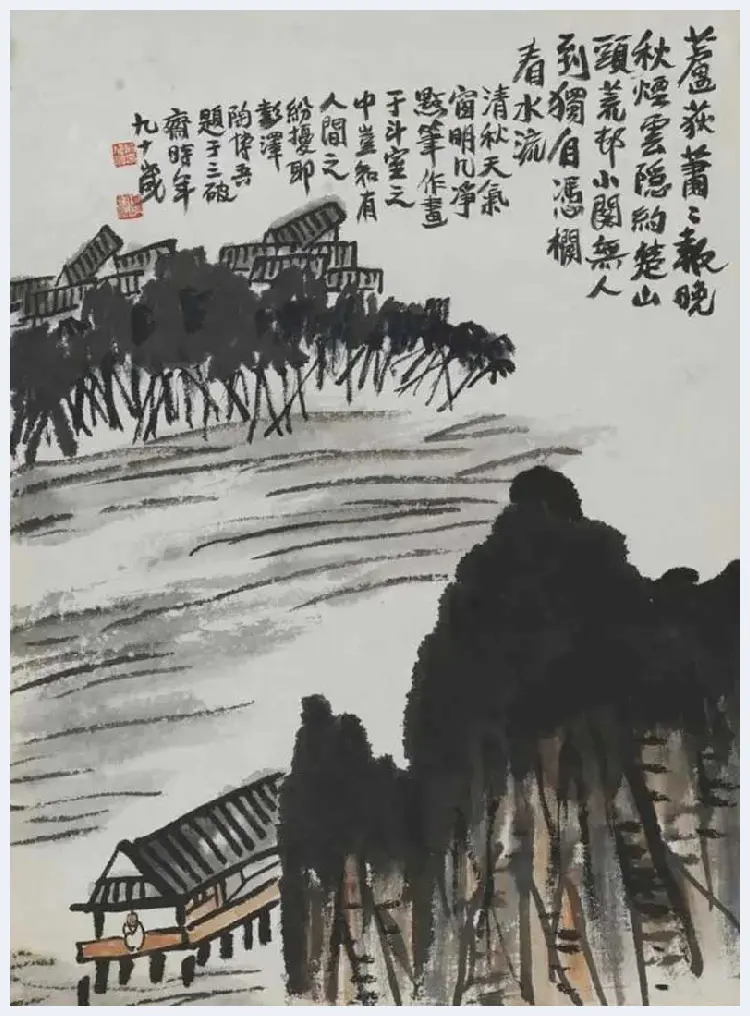 蘆荻蕭〻報晚
秋煙雲隱約楚山
頭荒邨小閣無人
到獨自憑欄
看水流
清秋天氣
窗明几淨
點筆作畫
于斗室之
中豈知有
人間之
紛擾耶
彭澤
陶博吾
題于三破
齋時年
九十歲